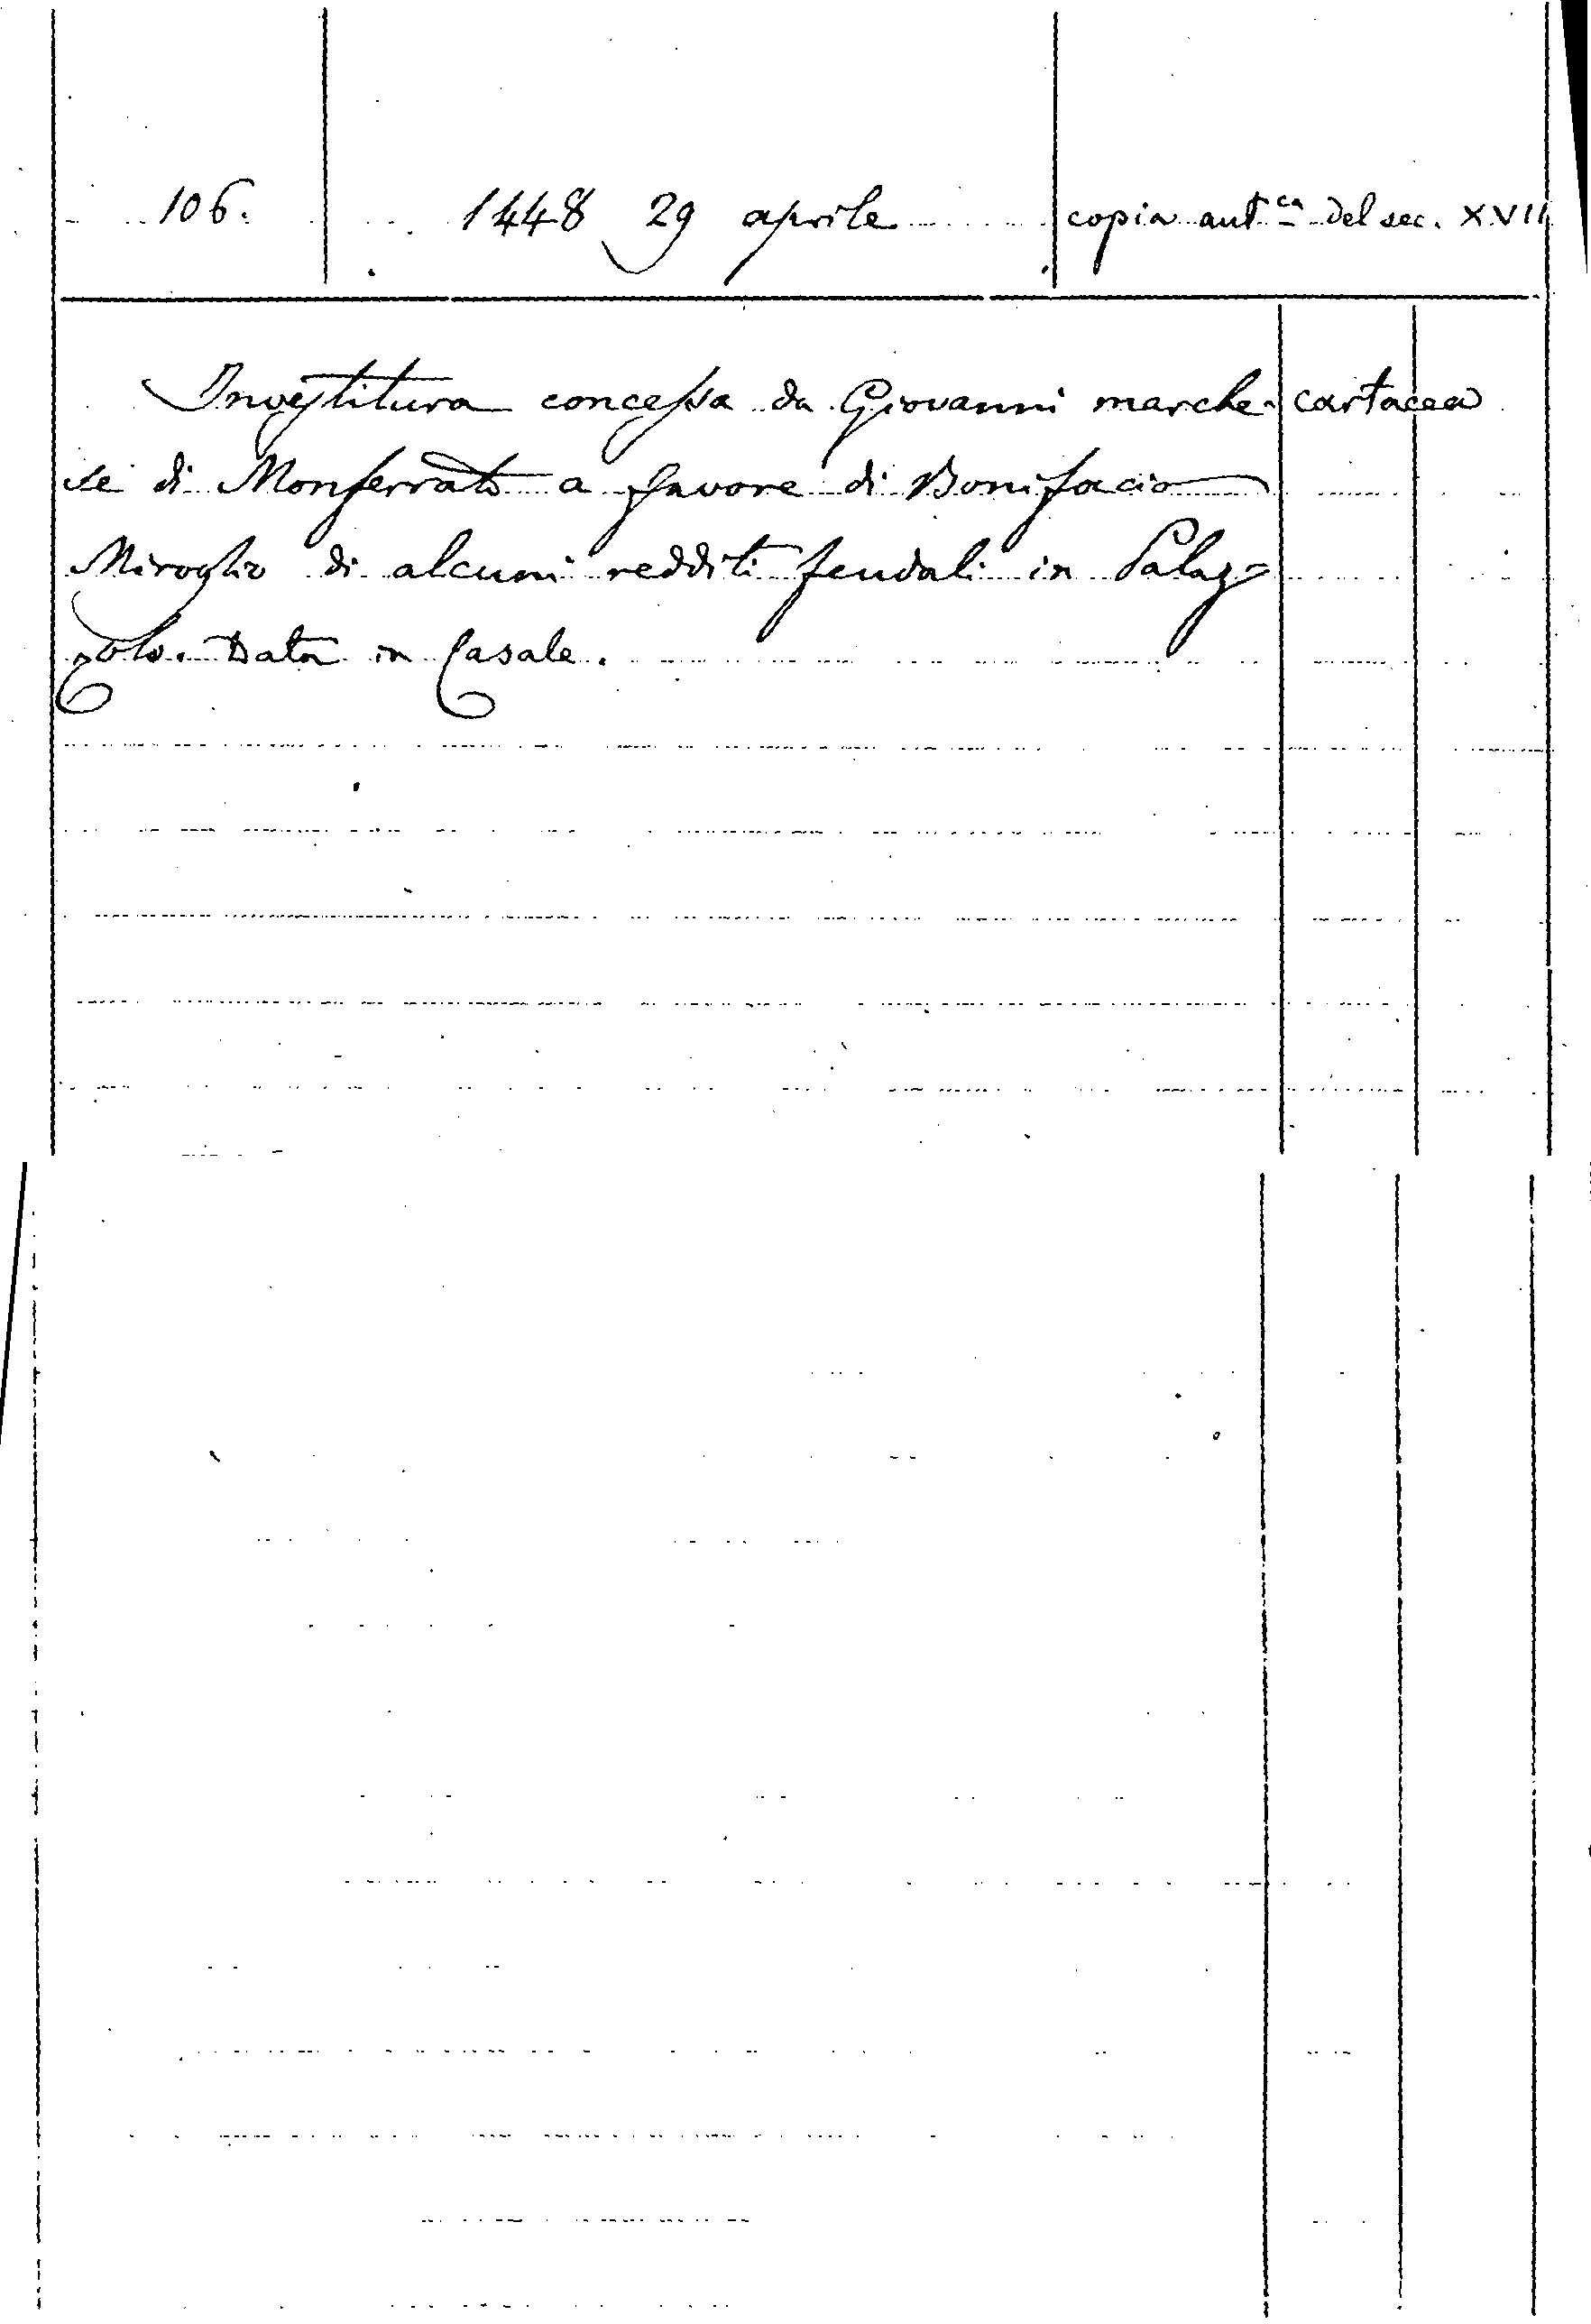 106. 1448 29 aprile copia aut.ca del sec. XVII
Investitura concessa da Giovanni marche- cartacea
se di Monferrato a favore di Bonifacio
Miroglio di alcuni redditi feudali in Palaz=
zolo. Data in Casale.